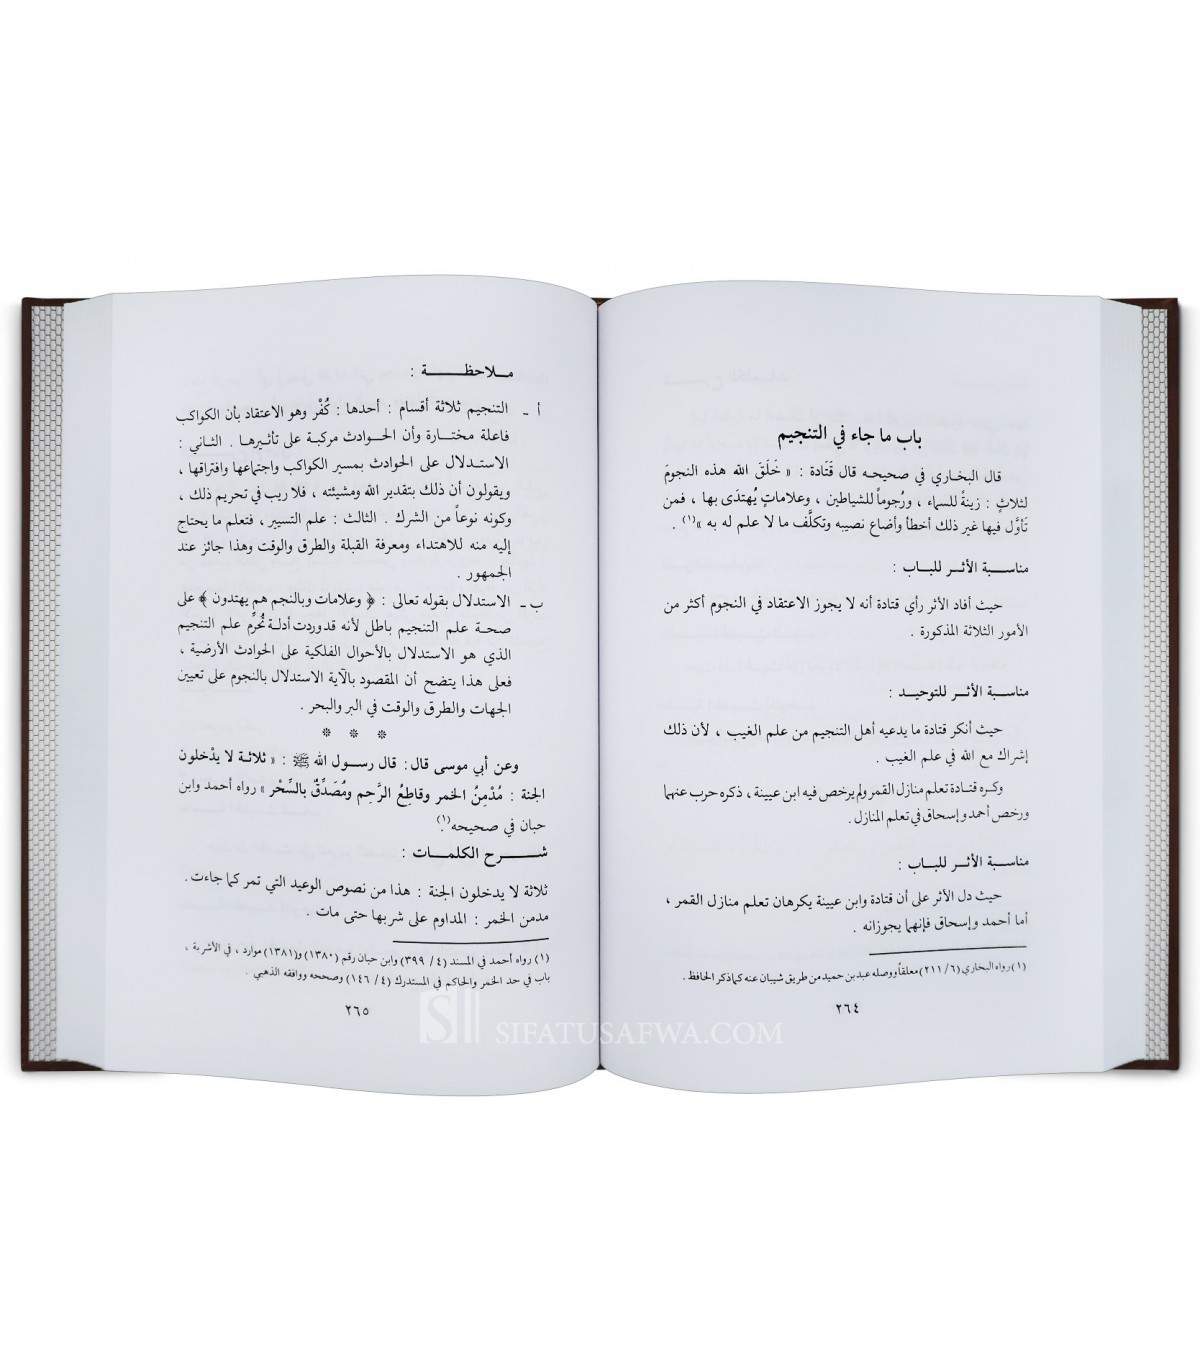 باب ما جاء في التنجيم
قال البخاري في صحيحه قال قَتَادة : « خَلَقَ الله هذه النجومَ
لثلاثٍ : زينةً للسماء ، ورُجوماً للشياطين ، وعلاماتٍ يُهتدَى بها ، فمن
تأوَّل فيها غير ذلك أخطأ وأضاع نصيبه وتكلَّف ما لا علم له به »(١) .
مناسبة الأثر للباب :
حيث أفاد الأثر رأي قتادة أنه لا يجوز الاعتقاد في النجوم أكثر من
الأمور الثلاثة المذكورة .
مناسبة الأثر للتوحيد :
حيث أنكر قتادة ما يدعيه أهل التنجيم من علم الغيب ، لأن ذلك
إشراك مع الله في علم الغيب .
وكره قتادة تعلم منازل القمر ولم يرخص فيه ابن عيينة ، ذكره حرب عنهما
ورخص أحمد وإسحاق في تعلم المنازل .
مناسبة الأثر للباب :
حيث دل الأثر على أن قتادة وابن عيينة يكرهان تعلم منازل القمر ،
أما أحمد وإسحاق فإنهما يجوزانه .
(١) رواه البخاري (٦/ ٢١١) معلقاً ووصله عبد بن حميد من طريق شيبان عنه كما ذكر الحافظ .
٢٦٤
ملاحظة :
أ ـ التنجيم ثلاثة أقسام : أحدها : كُفْر وهو الاعتقاد بأن الكواكب
فاعلة مختارة وأن الحوادث مركبة على تأثيرها . الثاني :
الاستدلال على الحوادث بمسير الكواكب واجتماعها وافتراقها ،
ويقولون أن ذلك بتقدير الله ومشيئته ، فلا ريب في تحريم ذلك ،
وكونه نوعاً من الشرك . الثالث : علم التسيير ، فتعلم ما يحتاج
إليه منه للاهتداء ومعرفة القبلة والطرق والوقت وهذا جائز عند
الجمهور .
ب ـ الاستدلال بقوله تعالى : ﴿ وعلامات وبالنجم هم يهتدون ﴾ على
صحة علم التنجيم باطل لأنه قد وردت أدلة تُحرِّم علم التنجيم
الذي هو الاستدلال بالأحوال الفلكية على الحوادث الأرضية ،
فعلى هذا يتضح أن المقصود بالآية الاستدلال بالنجوم على تعيين
الجهات والطرق والوقت في البر والبحر .
* * *
وعن أبي موسى قال : قال رسول الله ﷺ : « ثلاثة لا يدْخلون
الجنة : مُدْمِنُ الخمر وقاطِعُ الرَّحِم ومُصَدِّقٌ بالسِّحْر » رواه أحمد وابن
حبان في صحيحه(١).
شرح الكلمات :
ثلاثة لا يدخلون الجنة : هذا من نصوص الوعيد التي تمر كما جاءت .
مدمن الخمر : المداوم على شربها حتى مات .
(١) رواه أحمد في المسند (٤/ ٣٩٩) وابن حبان رقم (١٣٨٠) و(١٣٨١) موارد ، في الأشربة ،
باب في حد الخمر والحاكم في المستدرك (٤/ ١٤٦) وصححه ووافقه الذهبي .
٢٦٥
SIFATUSAFWA.COM